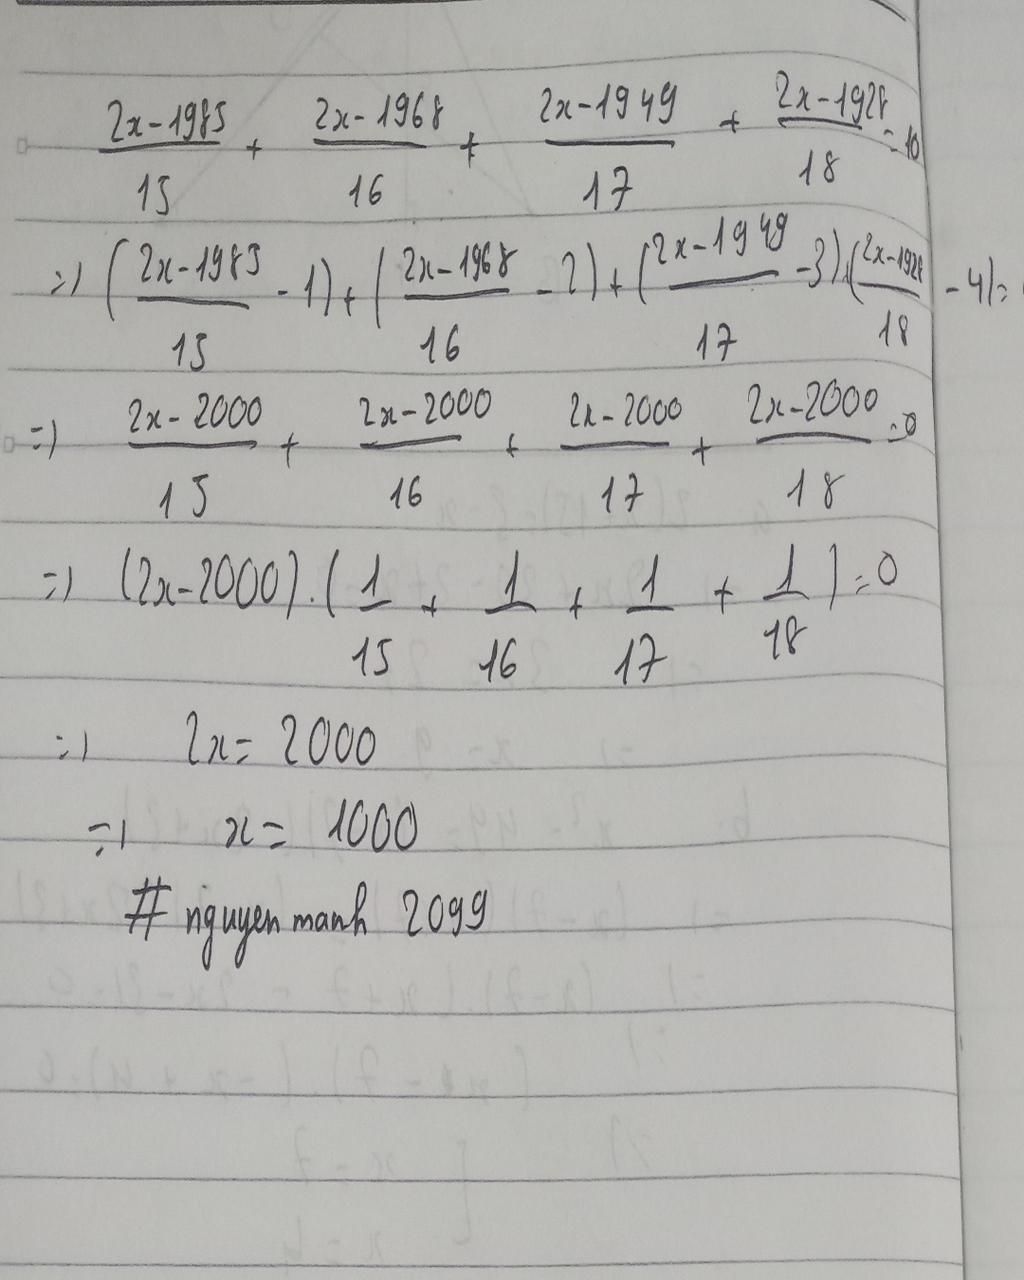 2x-1985/15 + 2x-1968/16 + 2x-1949/17 + 2x-1928/18 = 10
=> (2x-1985/15 - 1) + (2x-1968/16 - 2) + (2x-1949/17 - 3) + (2x-1928/18 - 4) =
=> 2x-2000/15 + 2x-2000/16 + 2x-2000/17 + 2x-2000/18 = 0
=> (2x-2000).(1/15 + 1/16 + 1/17 + 1/18) = 0
=> 2x = 2000
=> x = 1000
# nguyen manh 2099